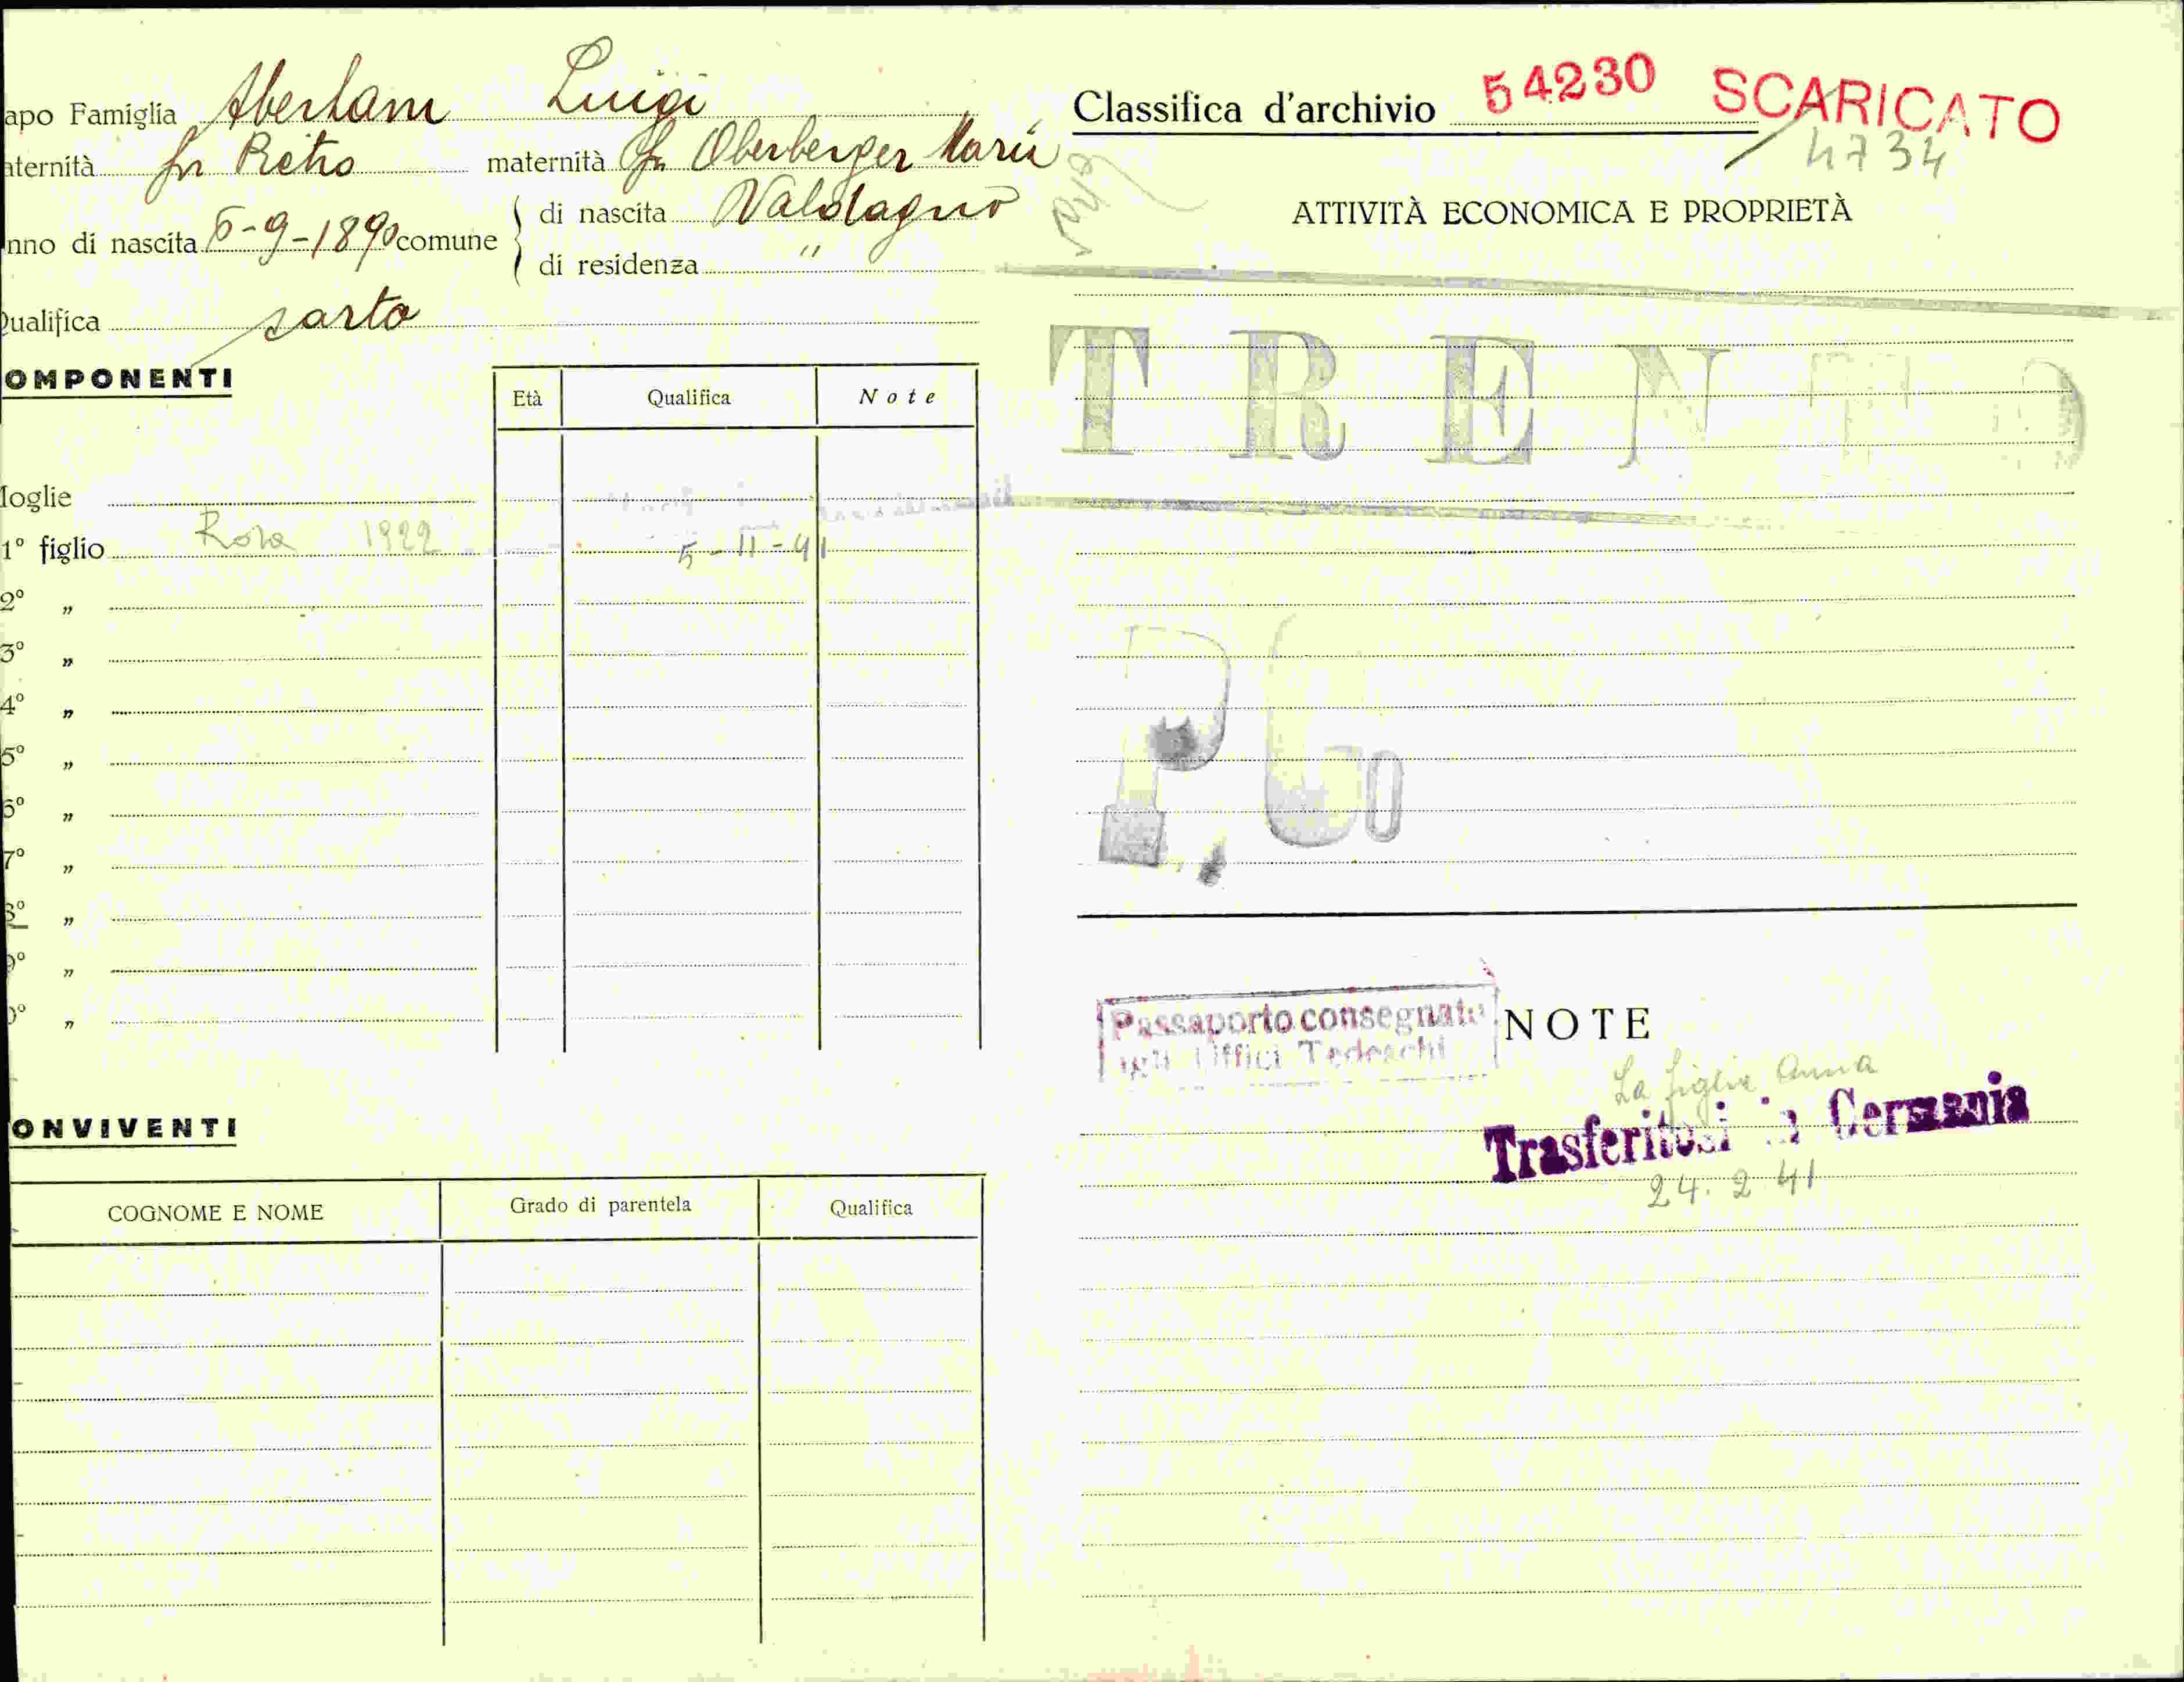 apo Famiglia Aberham Luigi
aternità fu Pietro maternità fu Oberberger Maria
nno di nascita 6-9-1890 comune di nascita Valdagno
di residenza "
Qualifica sarto
OMPONENTI
Età Qualifica Note
Moglie
1º figlio Rosa 1922 5-11-41
2º "
3º "
4º "
5º "
6º "
7º "
8º "
9º "
0º "
ONVIVENTI
COGNOME E NOME Grado di parentela Qualifica
Classifica d'archivio 54230 SCARICATO
4734
ATTIVITÀ ECONOMICA E PROPRIETÀ
TRENTO
Passaporto consegnato
Uffici Tedeschi
NOTE
La figlia Anna
Trasferitosi in Germania
24.2.41